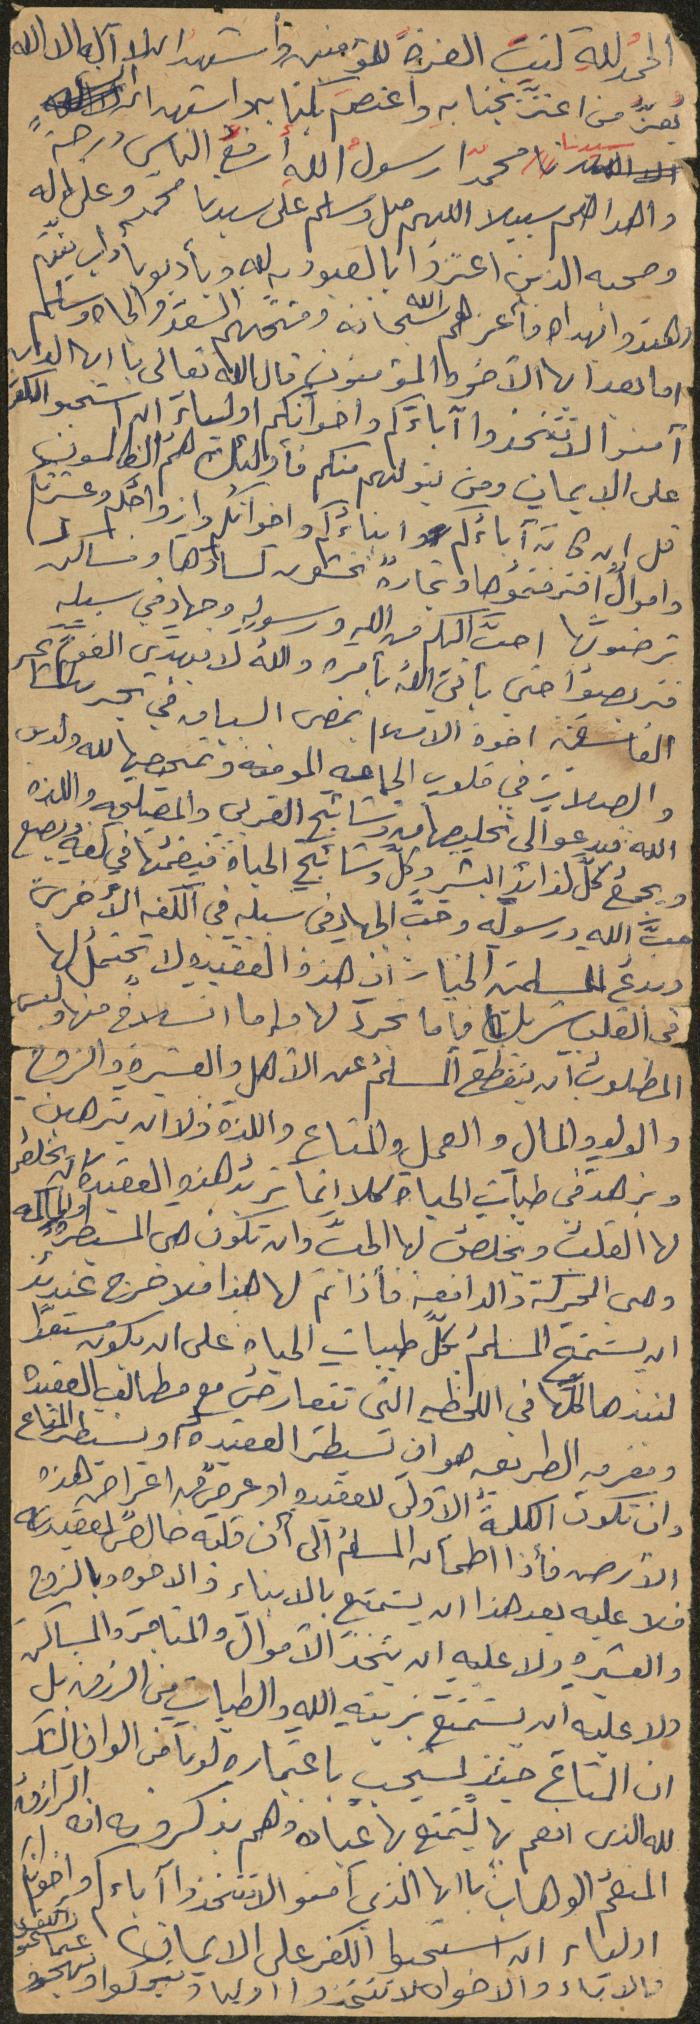 الحمد لله كتب العزة للمؤمنين وأشهد ان لا آله الا الله
يُعزُّ من اعتزَّ بجنابه واعتصم بكتابه واشهد ان
سيدنا محمدًا رسولُ الله أرفعُ الناس درجةً
واهداهم سبيلا اللهم صل وسلم على سيدنا محمد وعلى اله
وصحبه الذين اعتزوا بالعبوديه لله وتأدبوا بأداب نبيّهم
واهتدوا بهداه فأعزهم الله سبحانه ومنحهم السعد والجاه وسلم
اما بعد ايها الآخوة المؤمنون قال الله تعالى يا ايها الذين
آمنوا لا تتخذوا آباءَكم واخوانكم اولياءَ ان استحبوا الكفر
على الايمان ومن يتولهم منكم فأولئك هم الظالمون
قل ان كان آباءُكم وابناءُكم واخوانُكم وازواجُكم وعشيرتكم
واموالٌ اقترفتموُها وتجارةٌ تخشون كسادَها ومساكن
ترضونَها احبَّ اليكم من اللهِ ورسولِه وجهادٍ في سبيله
فتربصوُا حتى يأتيَ اللهُ بأمره واللهُ لا يهدي القومَ
الفاسقين اخوة الاسلام يمضى السياق في تجريد المشاعر
والصلات في قلوب الجماعه المؤمنه وتمحصيها لله ولدين
الله فيدعو الى تخليصها من وشائج القربى والمصلحه واللذه
ويجمعُ كلَّ لذائذِ البشر وكلَّ وشائجِ الحياة فيضعُها في كفهٍ ويضع
حبَّ الله ورسوله وحبَّ الجهاد في سبيله في الكفه الأخرى
ويدعُ للمسلمين الخيار أن هذه العقيدهَ لا تحتملُ لها
في القلب شريكًا فإما تجردٌ لها وإما انسلاخٌ منها وليس
المطلوبُ أن ينقطعَ المسلمُ عن الآهل والعشيرة والزوج
والولدِ والمال والعمل والمتاع واللذه ولا ان يترهبن
ويزهد في طيبات الحياة كلا انما تريدُ هذه العقيدة أن يخلصَ
لها القلبُ ويخلصَ لها الحبُّ وان تكون هى المسيطرةُ والحاكمه
وهى المحركة والدافعه فأذا تم لها هذا فلا حرج عندئذ
ان يستمتع المسلمُ بكلِّ طيباتِ الحياة على ان يكون مستعدًا
لنبذها كلِّها في اللحظهِ التي تتعارضُ مع مطالبِ العقيده
ومفرق الطريق هو ان تسيطرَ العقيدةُ او يسيطرَ المتاع
وان تكون الكلمةُ الأولى للعقيده او لعرضٍ من اعراض هذه
الأرض فأذا اطمأن المسلمُ الى أن قلبَه خالصٌ لعقيدته
فلا عليه بعد هذا ان يستمتع بالابناء والاخوه وبالزوج
والعشيره ولا عليه ان يتخذَ الأموالَ والمتاجرَ والمساكنَ
ولا عليه أن يستمتعَ بزينه اللهِ والطيباتِ من الرزق بل
ان المتاعَ حينئذٍ لمستحبٌ باعتباره لونًا من الوان الشكر
لله الذي انعم بها ليتمتعَ بها عبادُه وهم يذكرون انه الرازقُ
المنعمُ الوهابُ يا ايها الذين آمنو لا تتخذوا آباءَكم واخوانكم
اولياءَ ان استحبوا الكفر على الايمان
فالآباء والاخوان لا تتخذوا اولياء